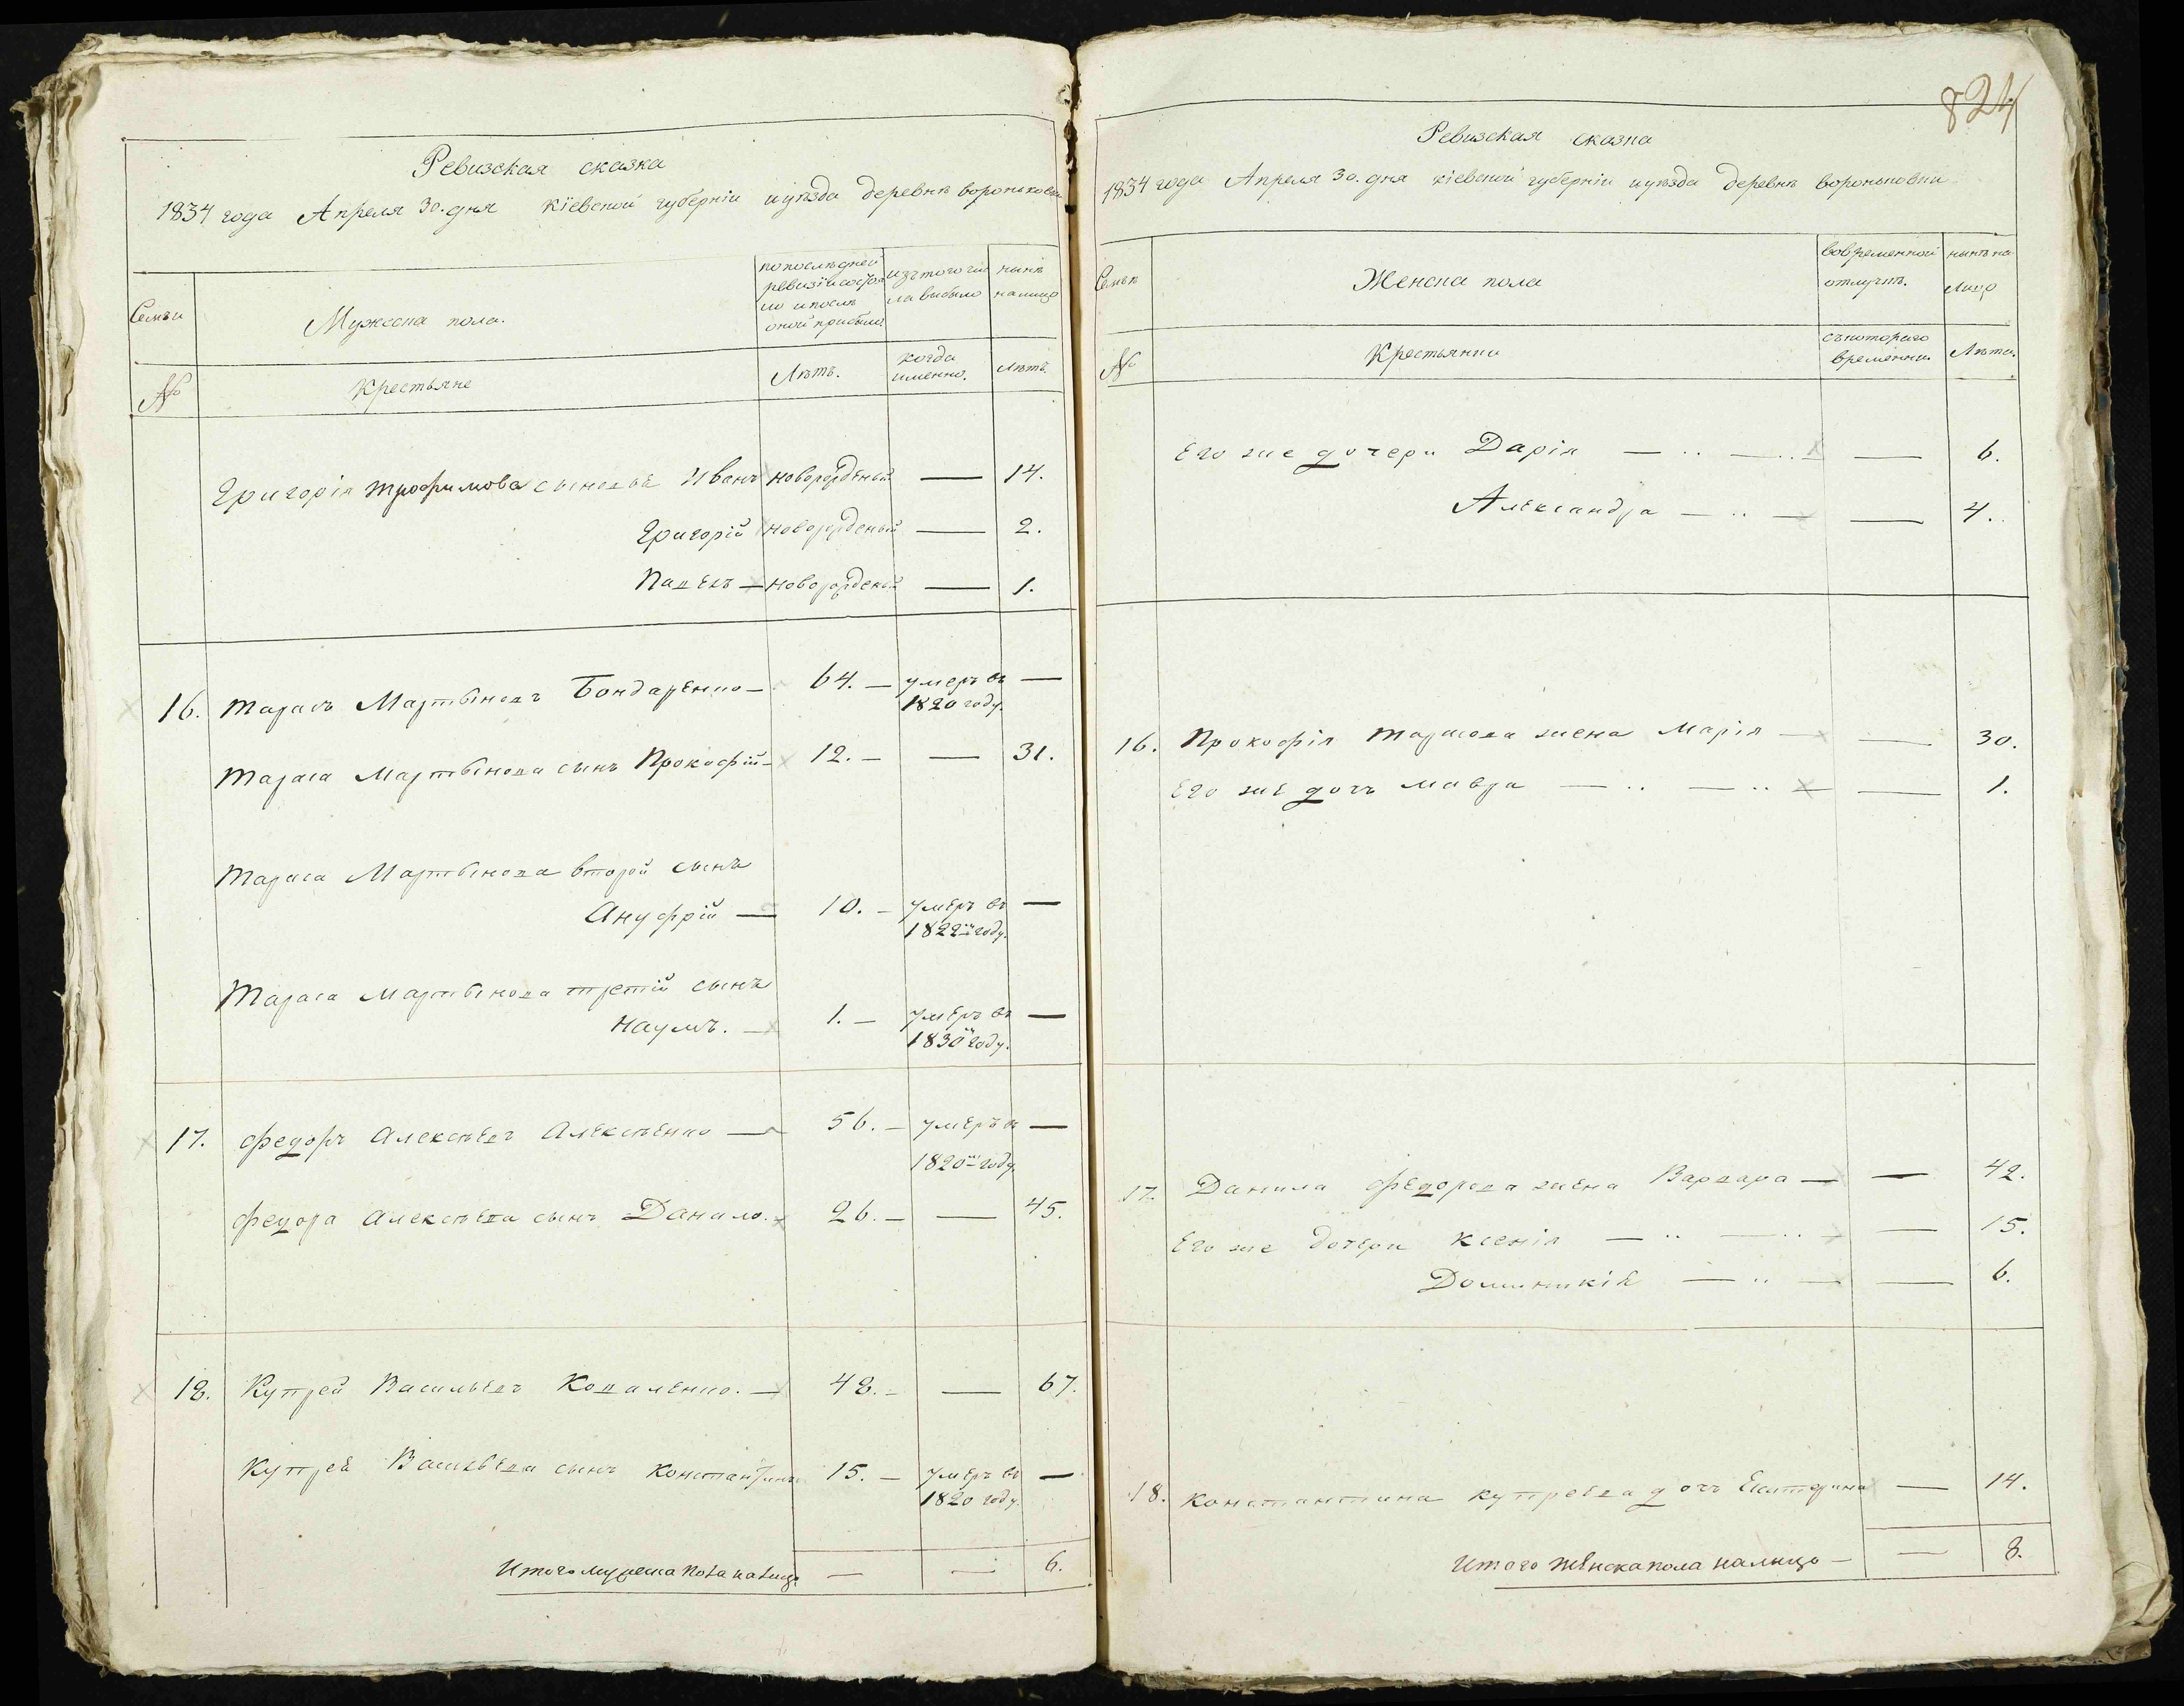 Ревизская сказка
1834 года Апреля 30. дня Кіевской губерніи иуѣзда деревнѣ вороньковки
Семьи
Мужеска пола.
попослѣдней
ревизіи состоя
ло и послѣ
оной прибыло
изтого чис
ла выбыло
нынѣ
налицо
№
Крестьяне
Лѣтъ.
когда
именно.
Лѣтъ.
Григорія трофимова сыновья Иванъ новорожденый — 14.
Григорій новорожденый — 2.
Павелъ — новорожденый — 1.
16. тарасъ Мартыновъ Бондаренко — 64. — умеръ въ —
1820 году.
тараса Мартынова сынъ Прокофій — 12. — — 31.
тараса Мартынова второй сынъ
Ануфрій — 10. — умеръ въ —
1822м году.
тараса Мартынова третій сынъ
наумъ. — 1. — умеръ въ —
1830м году.
17. федоръ Алексѣевъ Алексѣенко — 56. — умеръ в —
1820м году.
федора алексѣева сынъ Данило. 26. — — 45.
18. Купрей Васильевъ Коваленко. — 48. — — 67.
Купрея Васильева сынъ Константинъ 15. — умеръ въ —
1820 году.
Итого мужеска пола налицо — — 6.
824
Ревизская сказка
1834 года Апреля 30. дня кіевской губерніи иуѣзда деревнѣ вороньковки
Семьи
Женска пола
вовременной
отлучкѣ.
нынѣ на
лицо
№
Крестьянки
съкотораго
времянни.
Лѣта.
Его же дочери Дарія — .. — .. — 6.
Александра — .. — — 4.
16. Прокофія тарасова жена Марія — — 30.
Его же дочь мавра — .. — .. — — 1.
17. Данила федорова жена Варвара — — 42.
Его же дочери ксенія — .. — .. — 15.
Доминикія — .. — — 6.
18. константина купреева дочь Екатерина — 14.
Итого женска пола налицо — — 8.